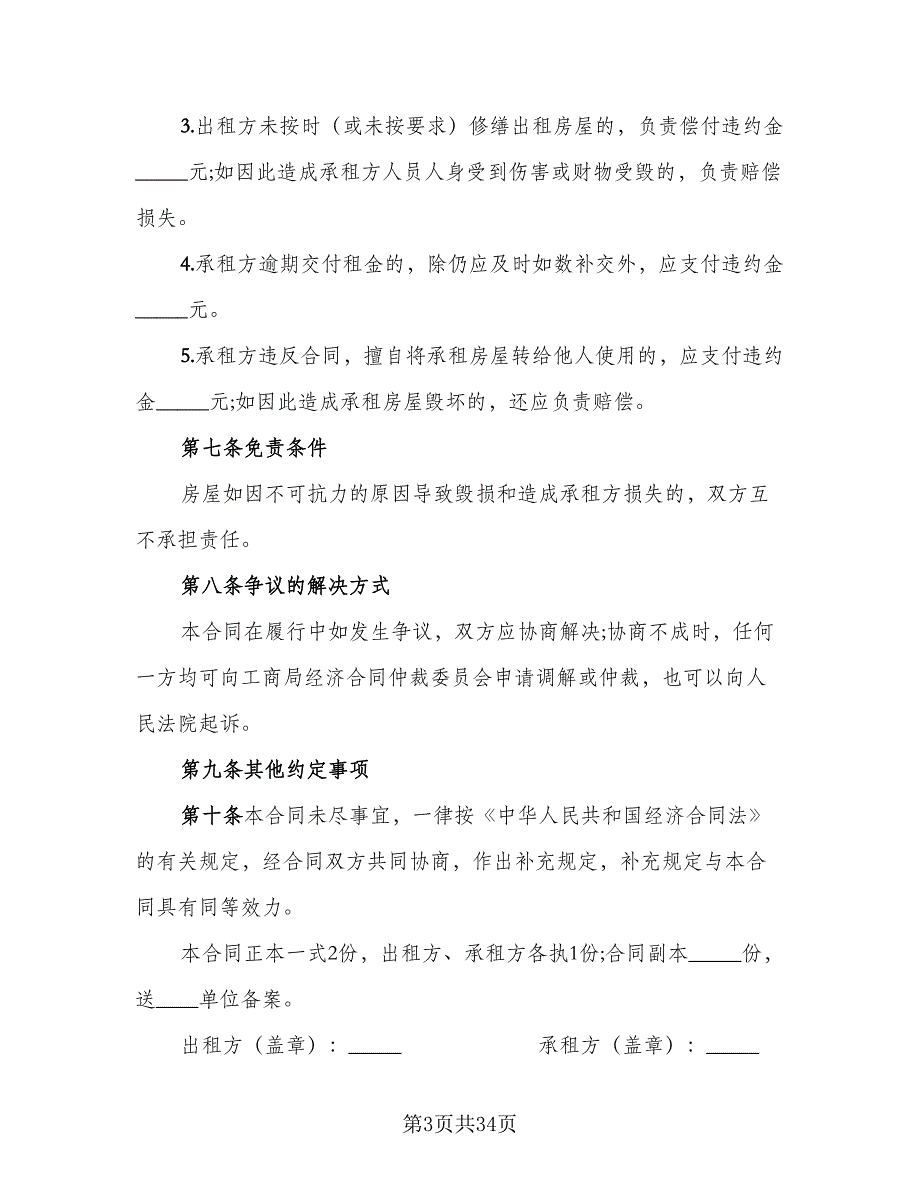 3.出租方未按时（或未按要求）修缮出租房屋的，负责偿付违约金
_____元;如因此造成承租方人员人身受到伤害或财物受毁的，负责赔偿
损失。
4.承租方逾期交付租金的，除仍应及时如数补交外，应支付违约金
_____元。
5.承租方违反合同，擅自将承租房屋转给他人使用的，应支付违约
金_____元;如因此造成承租房屋毁坏的，还应负责赔偿。
第七条免责条件
房屋如因不可抗力的原因导致毁损和造成承租方损失的，双方互
不承担责任。
第八条争议的解决方式
本合同在履行中如发生争议，双方应协商解决;协商不成时，任何
一方均可向工商局经济合同仲裁委员会申请调解或仲裁，也可以向人
民法院起诉。
第九条其他约定事项
第十条本合同未尽事宜，一律按《中华人民共和国经济合同法》
的有关规定，经合同双方共同协商，作出补充规定，补充规定与本合
同具有同等效力。
本合同正本一式2份，出租方、承租方各执1份;合同副本_____份，
送____单位备案。
出租方（盖章）：_____ 承租方（盖章）：_____
第3页共34页